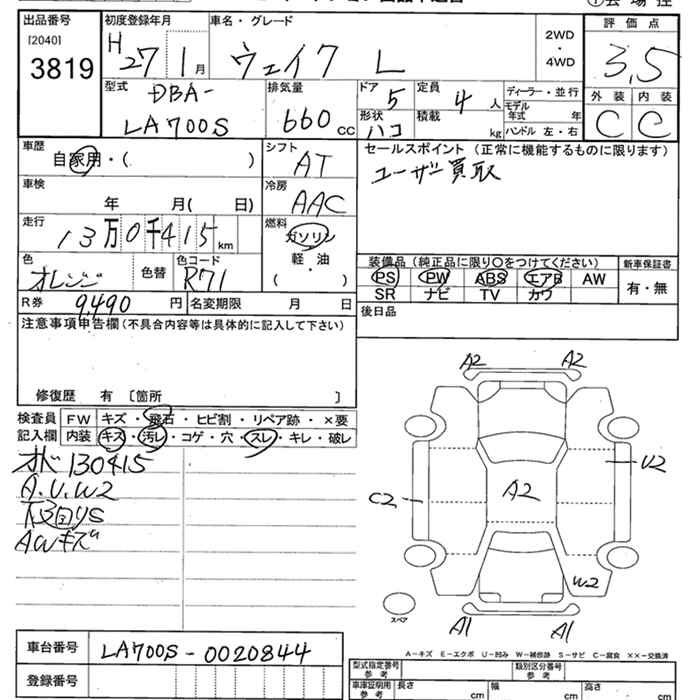 出品番号
[2040]
3819
初度登録年月
H 27 1 月
車名・グレード
ウェイク L
2WD
・
4WD
評価点
3.5
外装 内装
C C
型式
DBA-
LA700S
排気量
660 cc
ドア 5
形状 ハコ
定員 4 人
積載 kg
ディーラー・並行
モデル
年式 年
ハンドル 左・右
車歴
自家用・( )
シフト
AT
セールスポイント (正常に機能するものに限ります)
ユーザー買取
車検
年 月( 日)
冷房
AAC
走行
13万0千415 km
燃料
ガソリン
軽・油
・
( )
色
オレンジ
色替
色コード
R71
装備品 (純正品に限り〇をつけてください)
新車保証書
PS PW ABS エアB AW
有・無
SR ナビ TV カワ
R券 9,490 円
名変期限 月 日
後日品
注意事項申告欄(不具合内容等は具体的に記入して下さい)
修復歴 有 〔箇所 〕
検査員
記入欄
FW キズ・飛石・ヒビ割・リペア跡・×要
内装 キズ・汚レ・コゲ・穴・スレ・キレ・破レ
オド130415
A.U.W2
下回りS
AWキズ
A2 A2
U2
C2
A2
W2
A1 A1
スペア
A-キズ E-エクボ U-凹み W-補修跡 S-サビ C-腐食 ××-交換済
車台番号
LA700S-0020844
登録番号
型式指定番号
参考
類別区分番号
参考
車庫証明用
参考
長さ cm
幅 cm
高さ cm